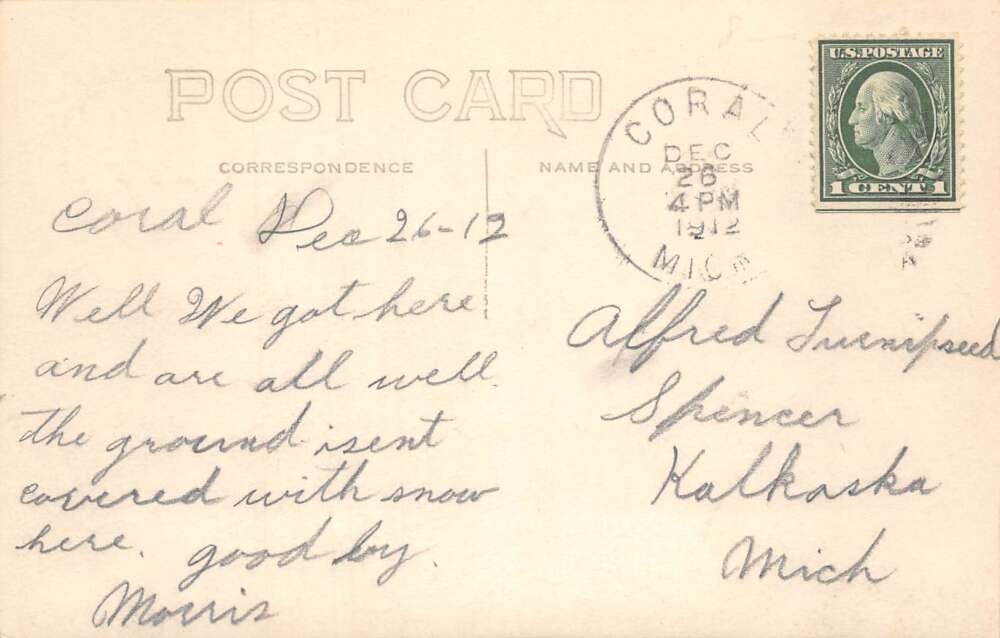 POST CARD
CORRESPONDENCE
NAME AND ADDRESS
U.S. POSTAGE
1 CENT 1
CORAL
DEC
26
4 PM
1912
MICH
Coral Dec 26-12
Well We got here
and are all well.
the ground isent
covered with snow
here. good by.
Morris
Alfred Turnipseed
Spencer
Kalkaska
Mich